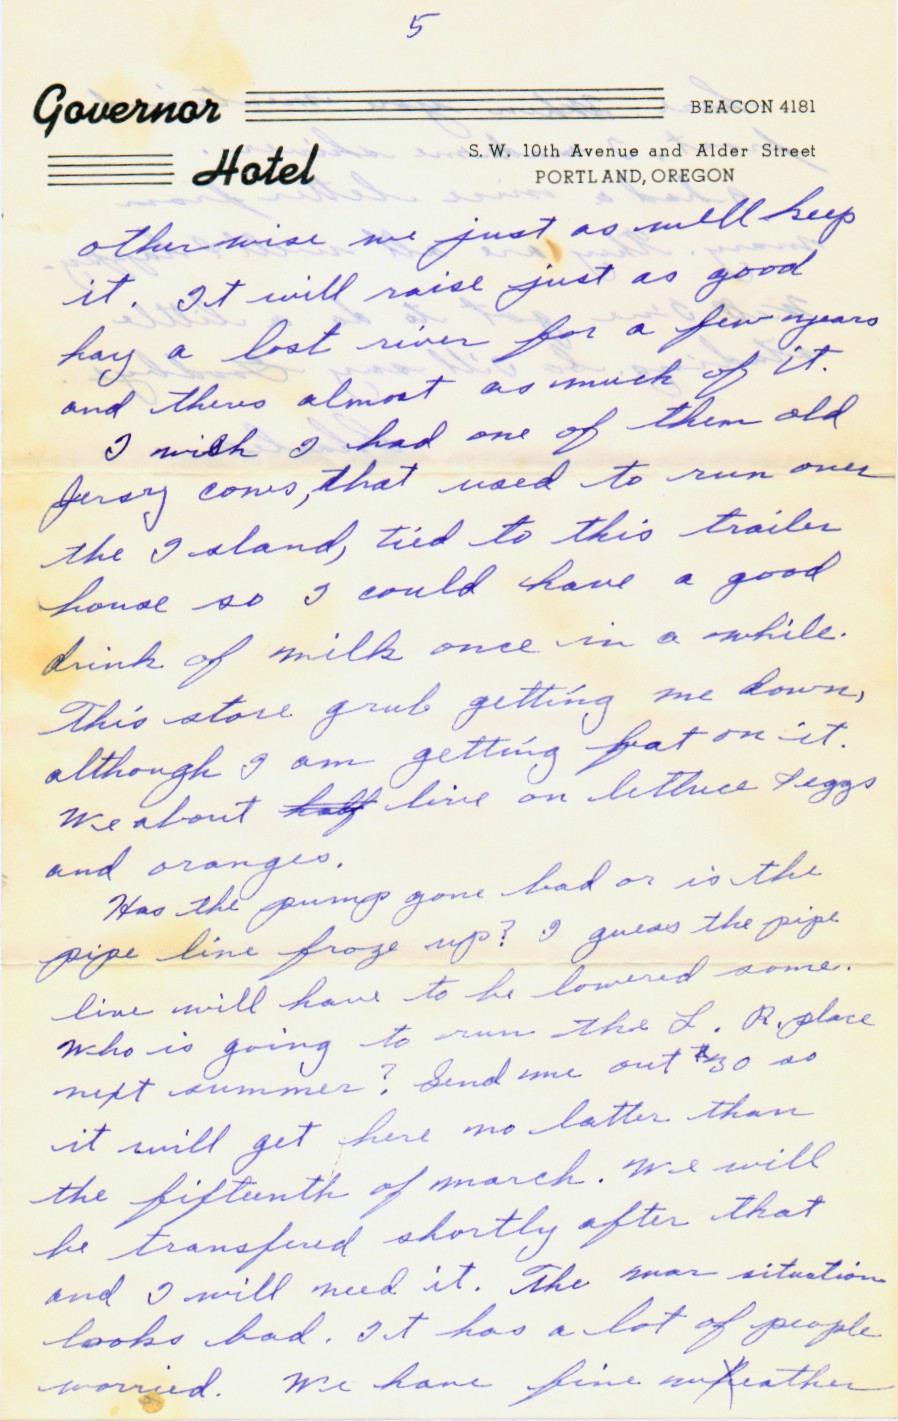 5
Governor
BEACON 4181
Hotel
S.W. 10th Avenue and Alder Street
PORTLAND, OREGON
otherwise we just as well keep
it. It will raise just as good
hay a lost river for a few years
and theres almost as much of it.
I wish I had one of them old
Jersy cows, that used to run over
the Island, tied to this trailer
house so I could have a good
drink of milk once in a while.
This store grub getting me down,
although I am getting fat on it.
We about half live on lettuce & eggs
and oranges.
Has the pump gone bad or is the
pipe line froze up? I guess the pipe
line will have to be lowered some.
Who is going to run the L. R. place
next summer? Send me out $30 so
it will get here no latter than
the fifteenth of march. We will
be transfered shortly after that
and I will need it. The war situation
looks bad. It has a lot of people
worried. We have fine weather